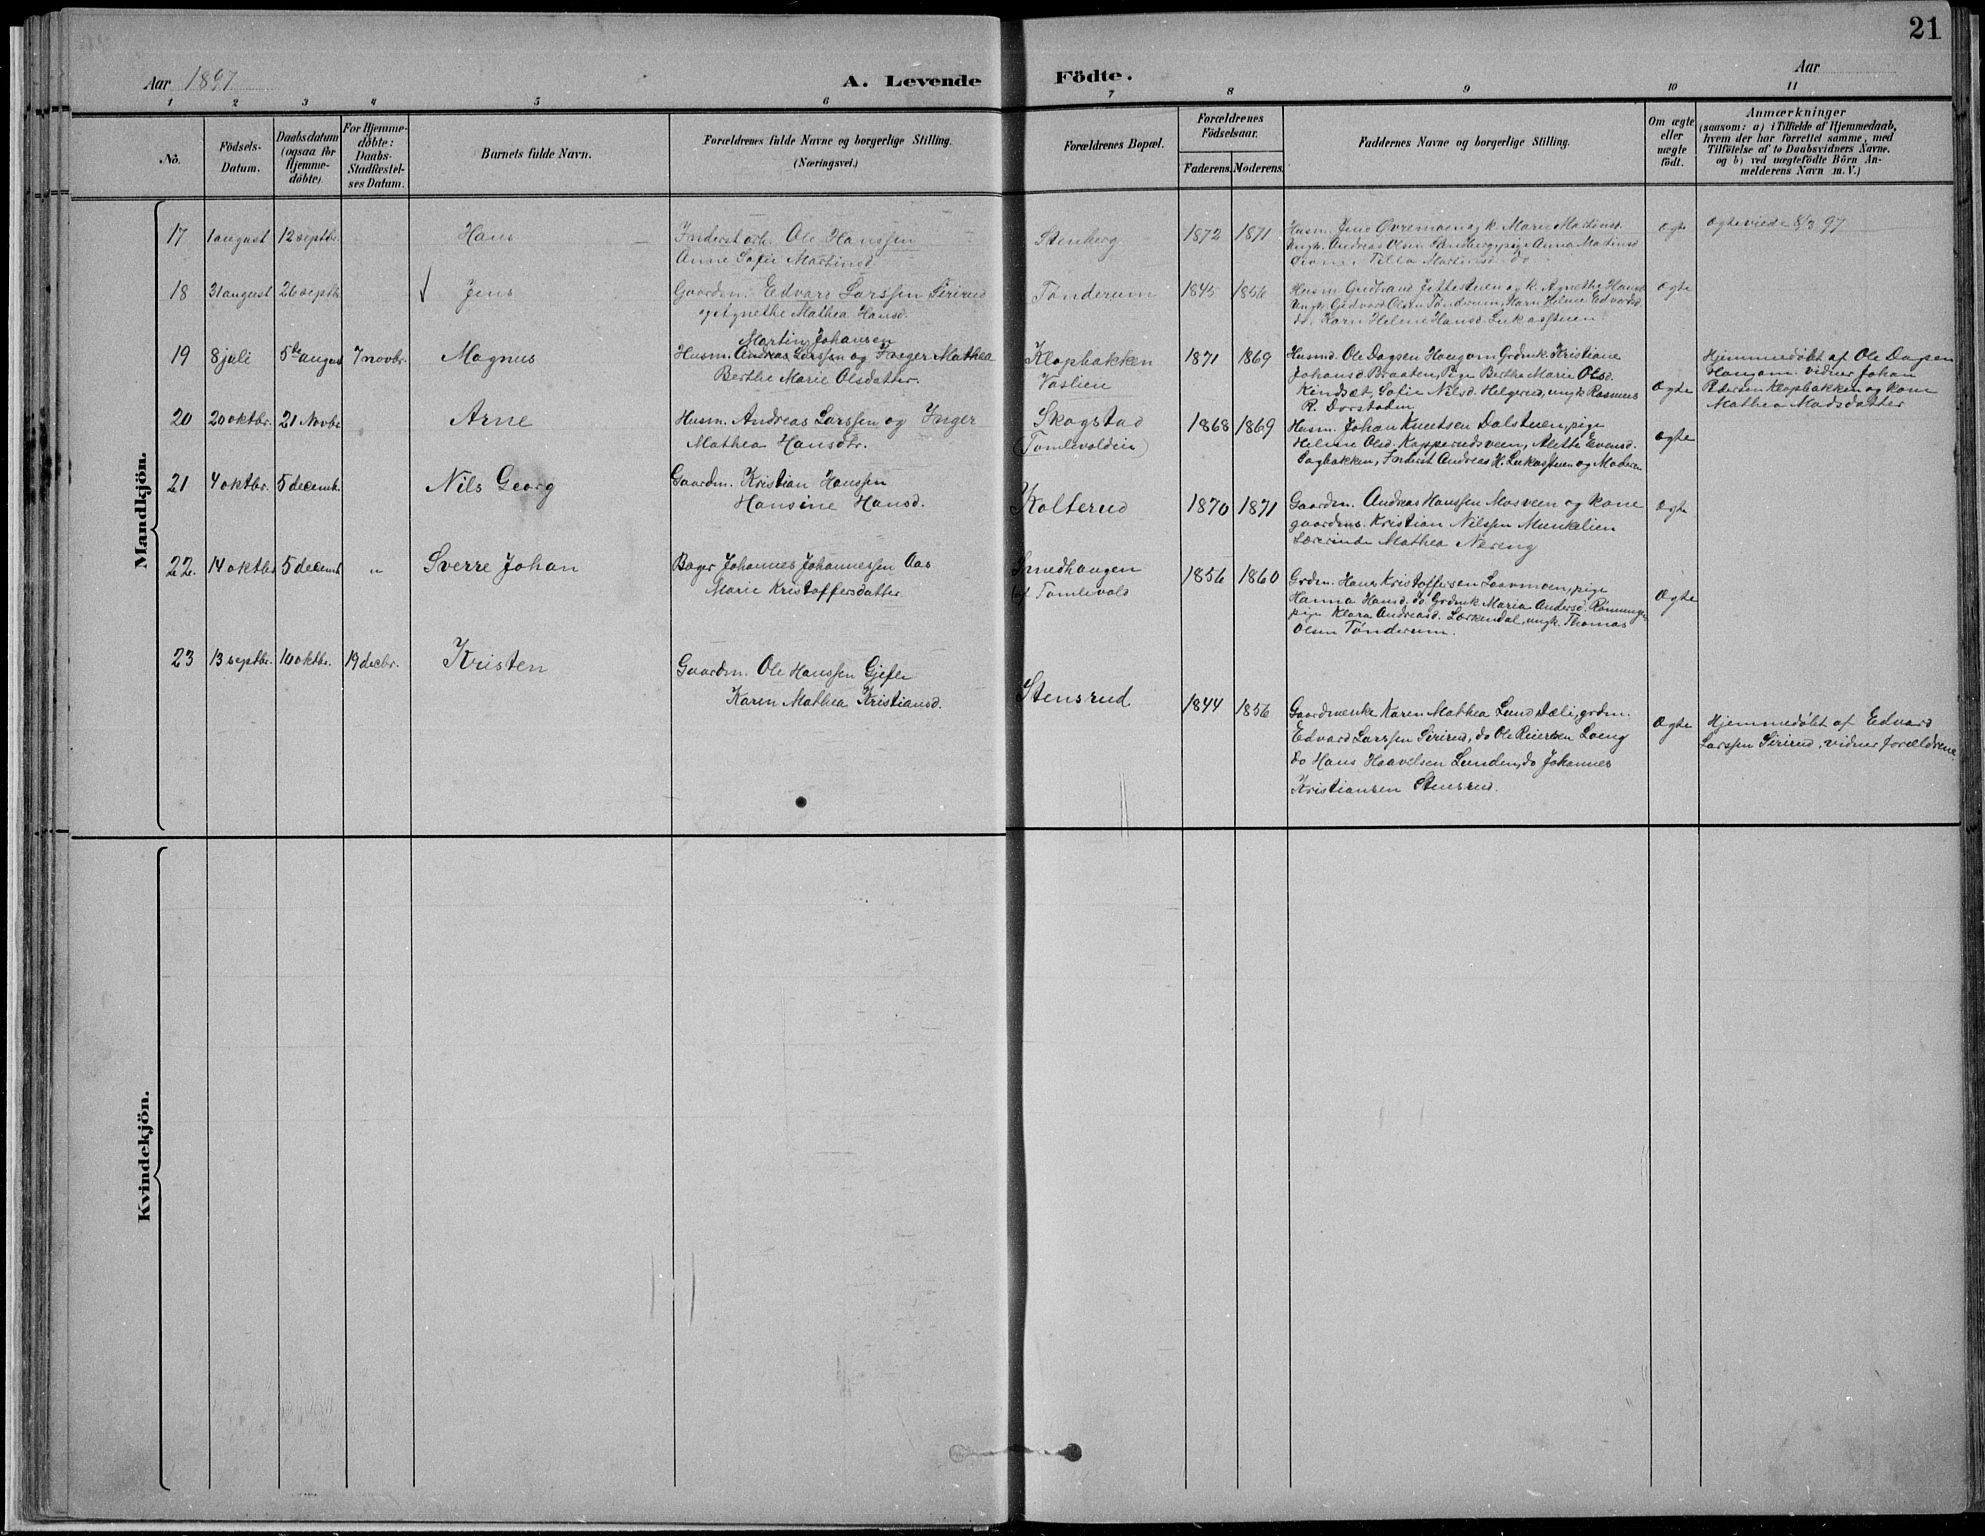 21
Aar 1897
A. Levende Födte.
Aar
1 2 3 4 5 6 7 8 9 10 11
No.
Födsels-Datum.
Daabsdatum (ogsaa for Hjemme-döbte)
For Hjemme-döbte: Daabs-Stadfæstel-ses Datum.
Barnets fulde Navn.
Forældrenes fulde Navne og borgerlige Stilling.
(Næringsvei.)
Forældrenes Bopæl.
Forældrenes Födselsaar.
Faderens. Moderens.
Faddernes Navne og borgerlige Stilling.
Om ægte eller uægte födt.
Anmærkninger
(saasom: a) i Tilfælde af Hjemmedaab,
hvem der har forrettet samme, med
Tilföielse af to Daabsvidners Navne.
og b) ved uægtefödte Börn An-
melderens Navn m. V.)
Mandkjön.
17 1 august 12 septbr. Hans
Inderst arb. Ole Hanssen
Anne Sofie Martinsd.
Stenberg 1872 1871
Husm. Jens Øvremoen og k. Marie Martinsd.
Ungk. Andreas Olsen Stenberg, pige Anna Martinsd
Tilla Martinsd. do
Ægte
Ægteviede 8/3 97
18 31 august 26 septb. Jens
Gaardm. Edvard Larssen Sirirud
og Agnethe Mathea Hansd.
Tønderum 1845 1856
Husm Gudbrand Jettestuen og k. Agnethe Hansd
Ungk. Gedvard Olsen Tønderum, Karn Helene Edvardsd
do. Karn Helene Hansd. Lukasstuen.
Ægte
19 8 juli 5te august 7 novbr. Magnus
Martin Johansen
Husm. Andreas Larssen og Inger Mathea
Berthe Marie Olsdatter.
Klopbakken
Vaslien
1871 1869
Husmd. Ole Dagsen Haugom Grdmk. Kristiane
Johansd Braaten, Pige Berthe Marie Olsd.
Kindsæt, Sofie Nilsd. Helgerud, ungk Rasmus
R. Dorstaden
Ægte
Hjemmedøbt af Ole Dagsen
Haugom. vidner Johan
Pedersen Klopbakken og kone
Mathea Madsdatter
20 20 oktbr. 21 Novbr Arne
Husm. Andreas Larssen og Inger
Mathea Hansdtr.
Skogstad
(Tomlevoldeie)
1868 1869
Husm. Johan Knutsen Dalstuen, pige
Helene Olsd. Kopperudsveen, Alette Evensd.
Sagbakken, Inderst Andreas H. Lukasstuen og Moderen
Ægte
21 4 oktbr. 5 decemb. Nils Georg
Gaardm. Kristian Hanssen
Hansine Hansd.
Kolterud 1870 1871
Gaardm. Andreas Hanssen Mosveen og kone
gaardms. Kristian Nilssen Munkelien
Lærerinde Mathea Nering
Ægte
22. 14 oktbr 5 decemb „ Sverre Johan
Bager Johannes Johannessen Aas
Marie Kristoffersdatter
Smedhaugen
af Tomlevold
1856 1860
Grdm. Hans Kristoffersen Laavmoen, pige
Hanna Hansd. do. Grdmk Maria Andersd. Rønningen
pige Klara Andreasd. Lærkendal, ungk. Thomas
Olsen Tønderum.
Ægte
23 13 septbr. 10 oktbr. 19 decbr. Kristen
Gaardm. Ole Hanssen Gjefle
Karen Mathea Kristiansd.
Stensrud 1844 1856
Gaardmenke Karen Mathea Lund Dæli, grdm.
Edvard Larssen Sirirud, do Ole Reiersen Loeng
do Hans Haavelsen Lunden, do Johannes
Kristiansen Stensrud.
Ægte
Hjemmedøbt af Edvard
Larssen Sirirud, vidner forældrene.
Kvindekjön.